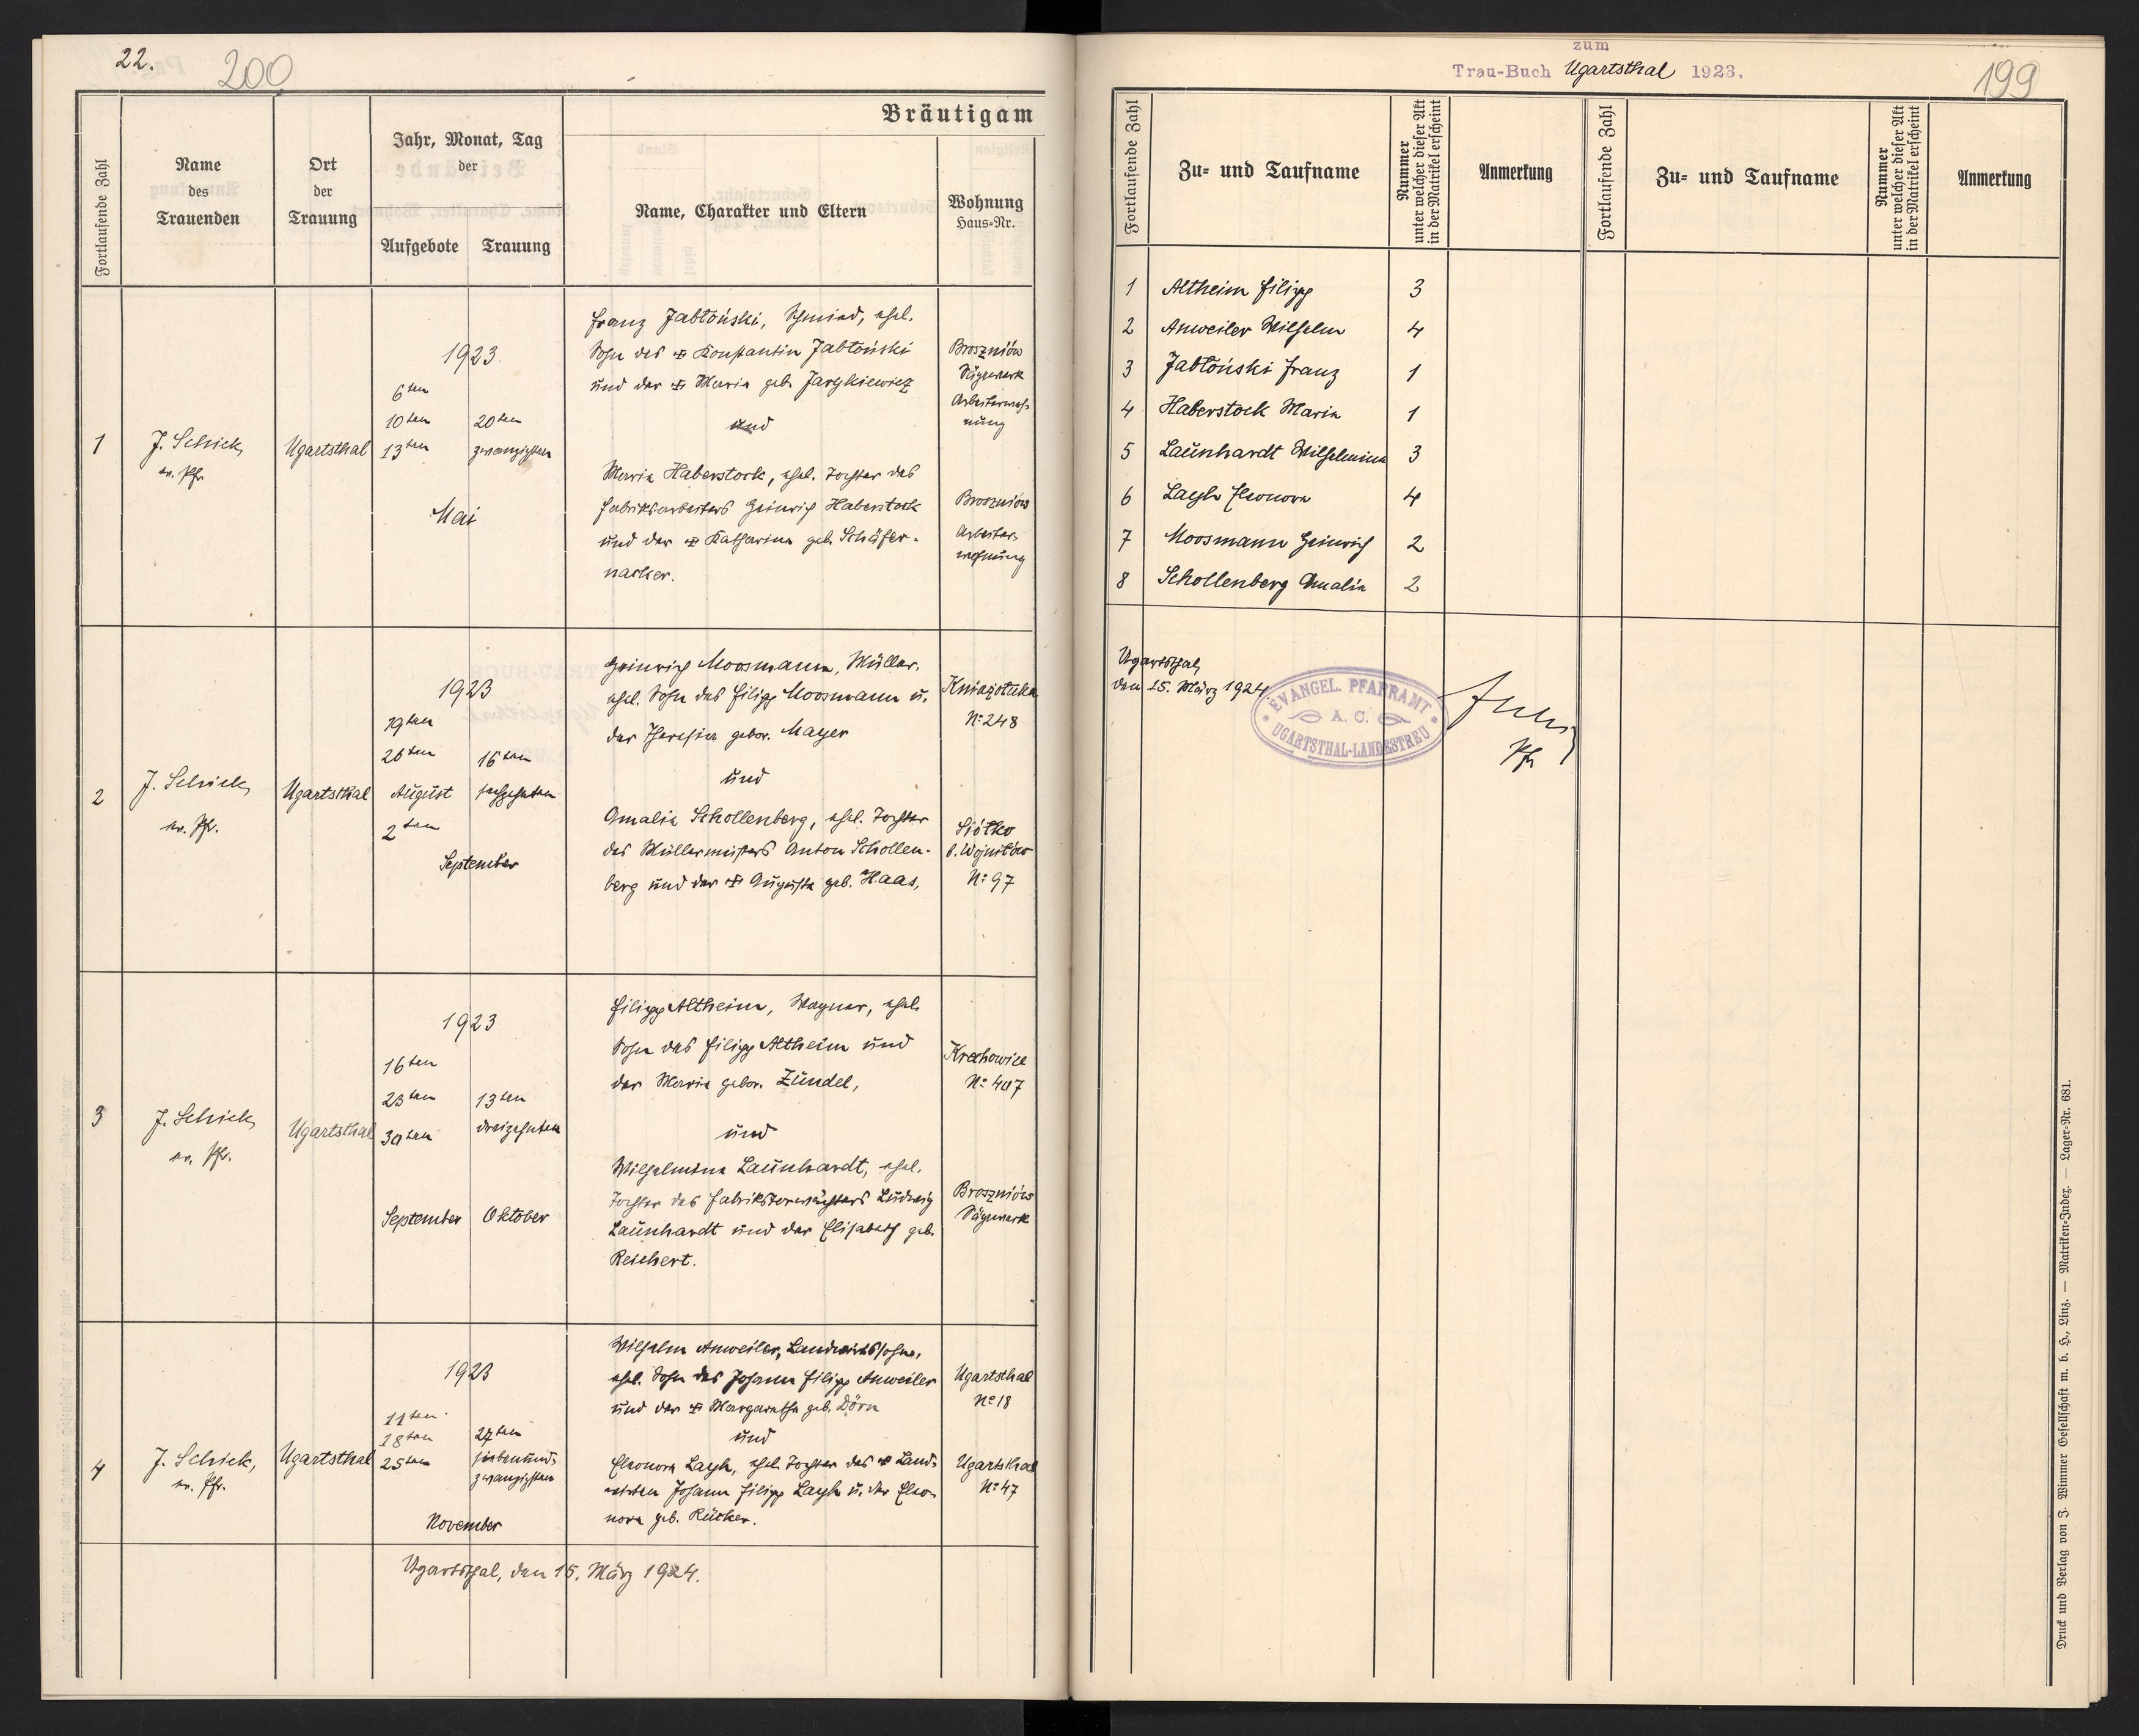 22.
200
Bräutigam
Fortlaufende Zahl
Name
des
Trauenden
Ort
der
Trauung
Jahr, Monat, Tag
der
Aufgebote
Trauung
Name, Charakter und Eltern
Wohnung
Haus-Nr.
1
J. Schick,
ev. Pfr.
Ugartsthal
1923
6ten
10ten 20ten
13ten zwanzigsten
Mai
Franz Jabłoński, Schmied, ehel.
Sohn des Konstantin Jabłoński
und der Maria geb.
und
Maria Haberstock, ehel. Tochter des
Fabriksarbeiters Heinrich Haberstock
und der Katharina geb. Schäfer-
nacker.
Broszniów
Sägewerk
Arbeiterwoh-
nung
Broszniów
Arbeiter-
wohnung
2
J. Schick,
ev. Pfr.
Ugartsthal
1923
19ten
26ten 16ten
August sechzehnten
2ten
September
Heinrich Moosmann, Müller,
ehel. Sohn des Filipp Moosmann u.
der Theresia gebor. Mayer
und
Amalia Schollenberg, ehel. Tochter
des Müllermeisters Anton Schollen-
berg und der Augusta geb. Haas,
Kniaźołuka
No 248
No 97
3
J. Schick,
ev. Pfr.
Ugartsthal
1923
16ten
23ten 13ten
30ten dreizehnten
September Oktober
Filipp Altheim, Wagner, ehel.
Sohn des Filipp Altheim und
der Maria gebor. Zündel,
und
Wilhelmina Launhardt, ehel.
Tochter des Fabrikstorwächters Ludwig
Launhardt und der Elisabeth geb.
Reichert.
Krechowice
No 407
Broszniów
Sägewerk
4
J. Schick,
ev. Pfr.
Ugartsthal
1923
11ten
18ten 27ten
25ten siebenund-
zwanzigsten
November
Wilhelm Anweiler, Landwirtssohn,
ehel. Sohn des Johann Filipp Anweiler
und der Margaretha geb. Dörn
und
Eleonora Layh, ehel. Tochter des Land-
wirten Johann Filipp Layh u. der Eleo-
nora geb. Rücker.
Ugartsthal
No 18
Ugartsthal
No 47
Ugartsthal, den 15. März 1924.
zum
Trau-Buch Ugartsthal 1923.
199
Fortlaufende Zahl
Zu- und Taufname
Nummer
unter welcher dieser Akt
in der Matrikel erscheint
Anmerkung
Fortlaufende Zahl
Zu- und Taufname
Nummer
unter welcher dieser Akt
in der Matrikel erscheint
Anmerkung
1 Altheim Filipp 3
2 Anweiler Wilhelm 4
3 Jabłoński Franz 1
4 Haberstock Maria 1
5 Launhardt Wilhelmina 3
6 Layh Eleonora 4
7 Moosmann Heinrich 2
8 Schollenberg Amalia 2
Ugartsthal,
den 15. März 1924.
EVANGEL. PFARRAMT
A. C.
UGARTSTHAL-LANDESTREU
Pfr
Druck und Verlag von J. Wimmer Gesellschaft m. b. H., Linz. — Matriken-Index. — Lager-Nr. 681.